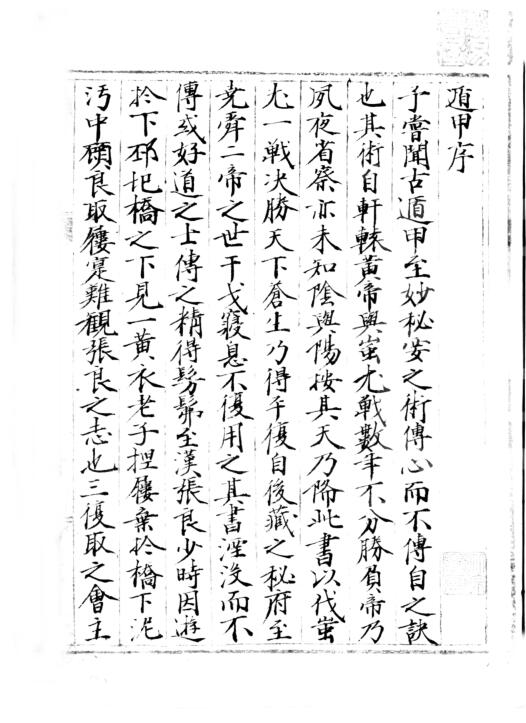 遁甲序
予嘗聞古遁甲至妙秘安之術傳心而不傳自之訣
也其術自軒轅黃帝與蚩尤戰數年不分勝負帝乃
夙夜省察亦未知陰與陽按其天乃降此書以伐蚩
尤一戰決勝天下蒼生乃得平復自後藏之秘府至
堯舜二帝之世干戈寢息不復用之其書湮没而不
傳或好道之士傳之精得髣髴至漢張良少時因遊
於下邳圯橋之下見一黃衣老子捏䕶棄於橋下泥
汚中顧良取䕶寔難觀張良之志也三復取之會主